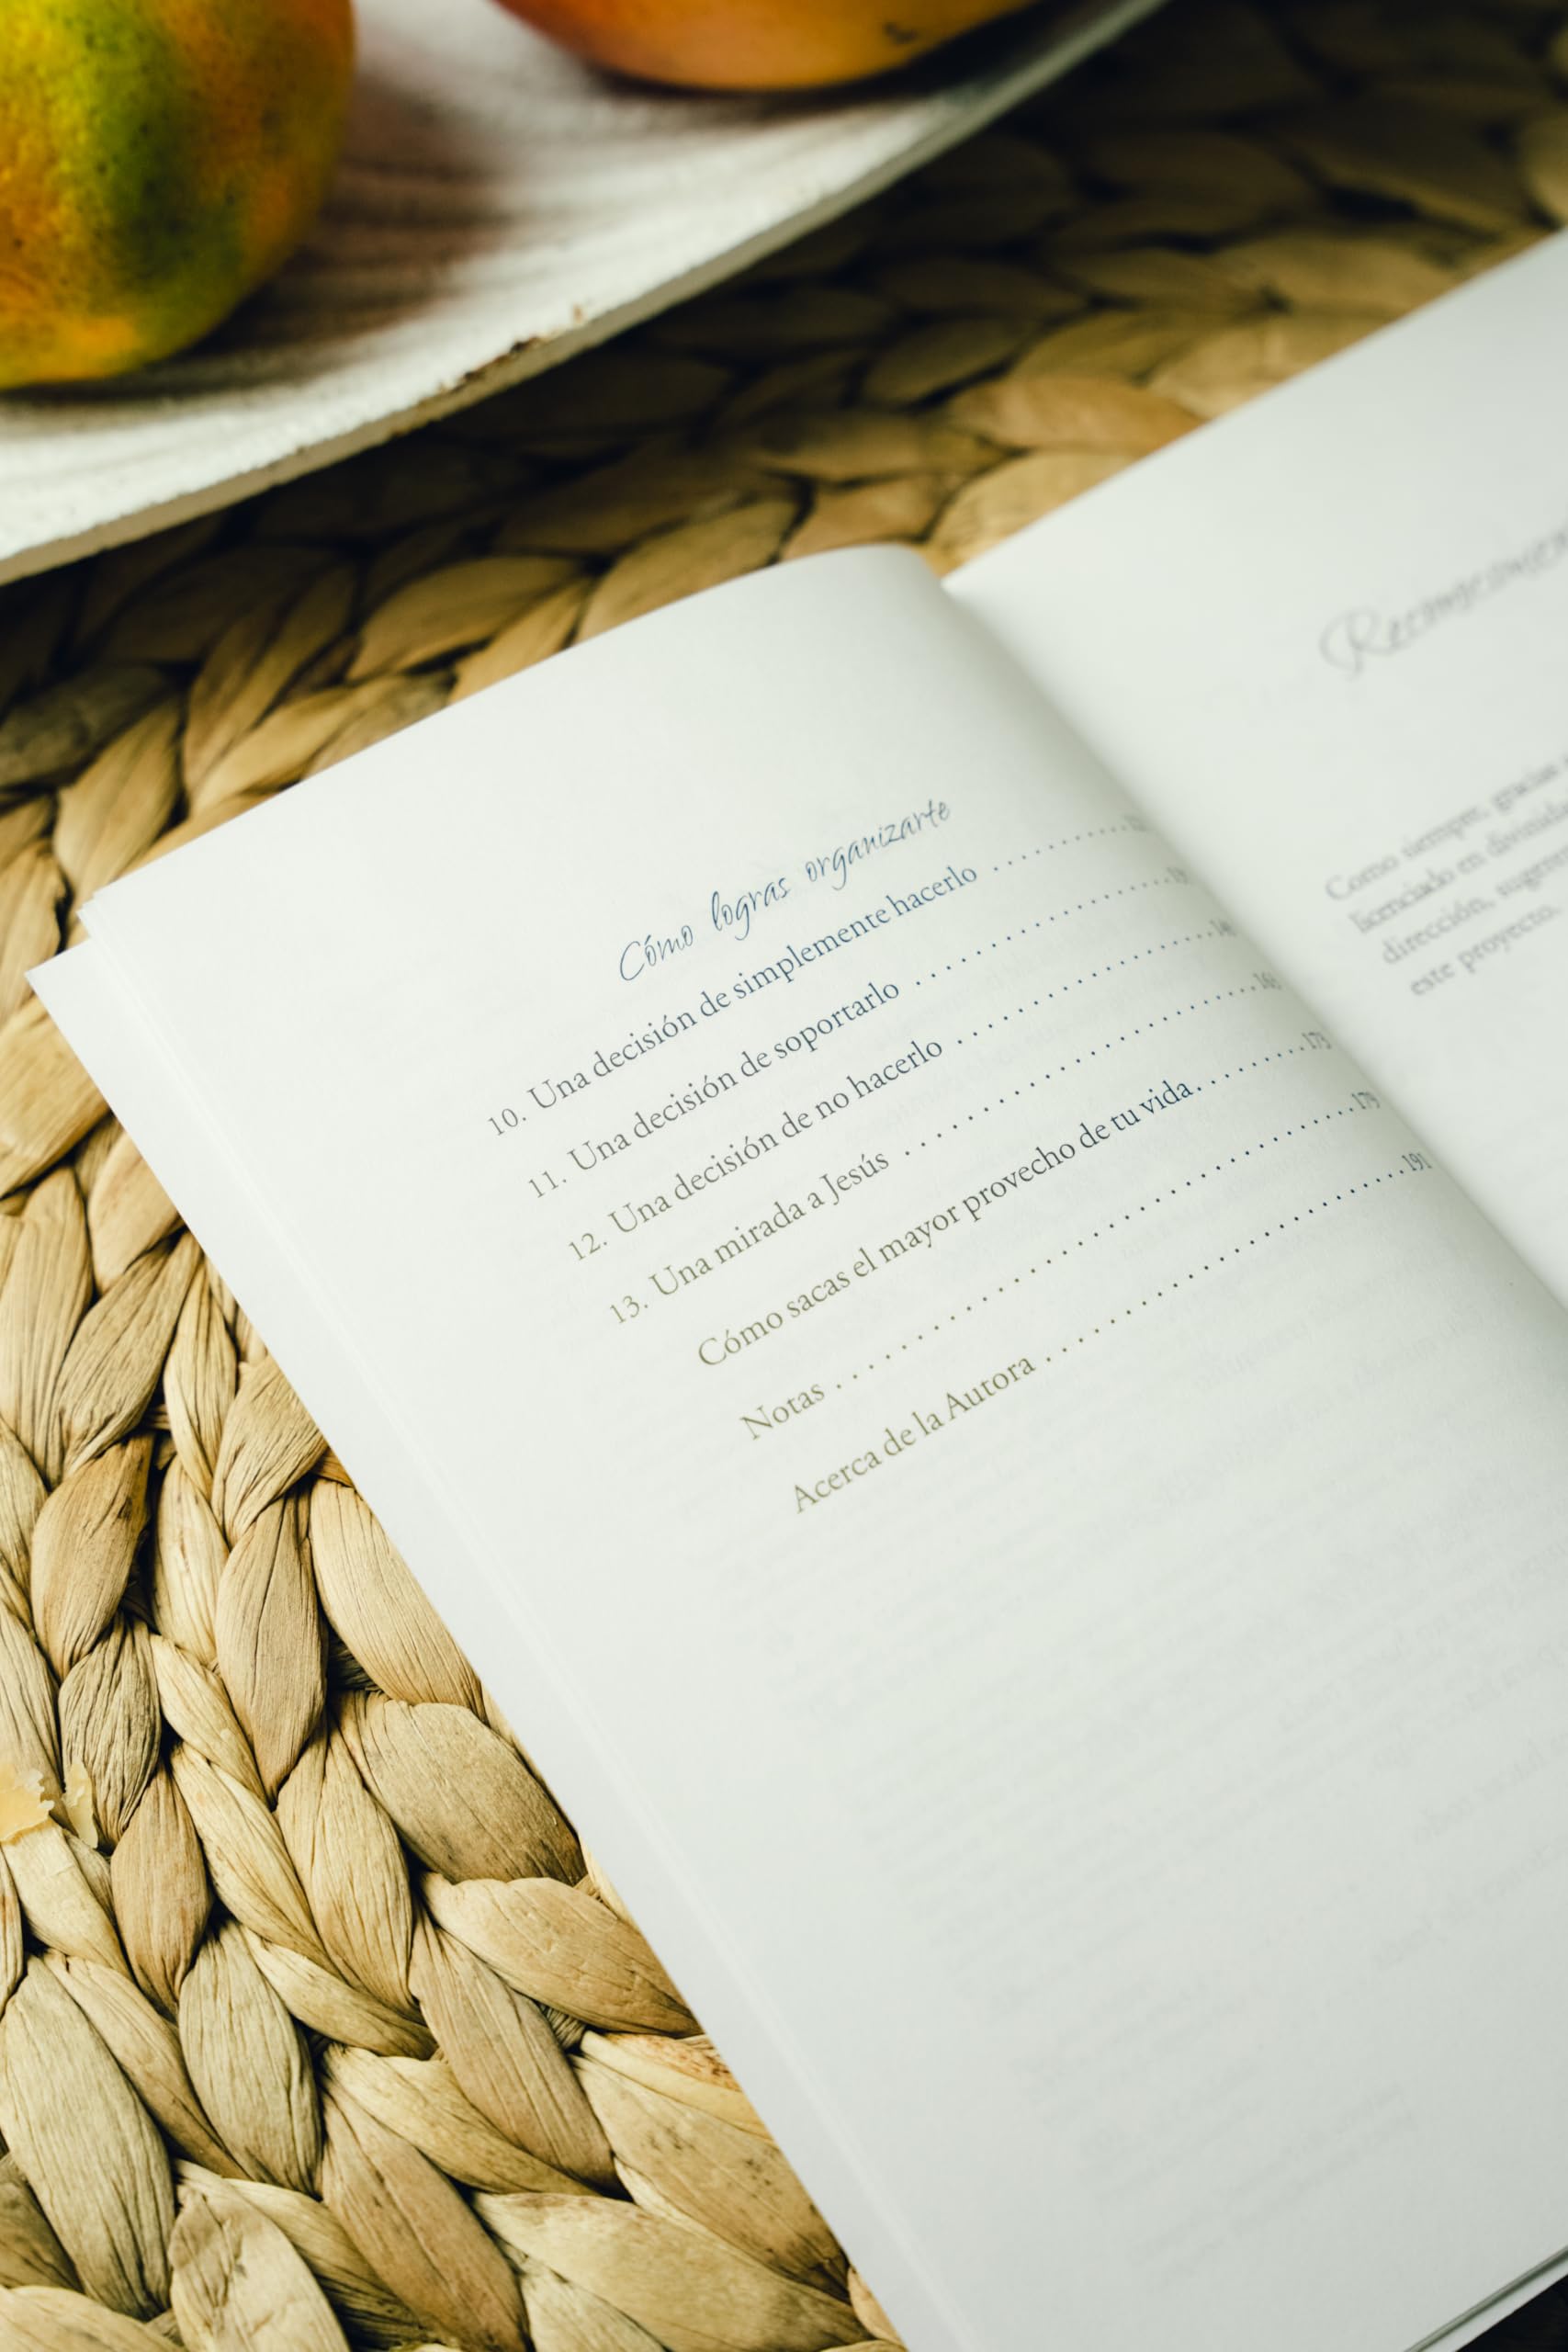 Cómo logras organizarte
10. Una decisión de simplemente hacerlo
11. Una decisión de soportarlo
12. Una decisión de no hacerlo
13. Una mirada a Jesús . . . . . . . . . . . . . . . . . . . . 163
Cómo sacas el mayor provecho de tu vida. . . . . . . . 173
Notas . . . . . . . . . . . . . . . . . . . . . . . . . . . . 179
Acerca de la Autora . . . . . . . . . . . . . . . . . . . . 191
Como siempre, gracias
licenciado en
dirección,
este proyecto.